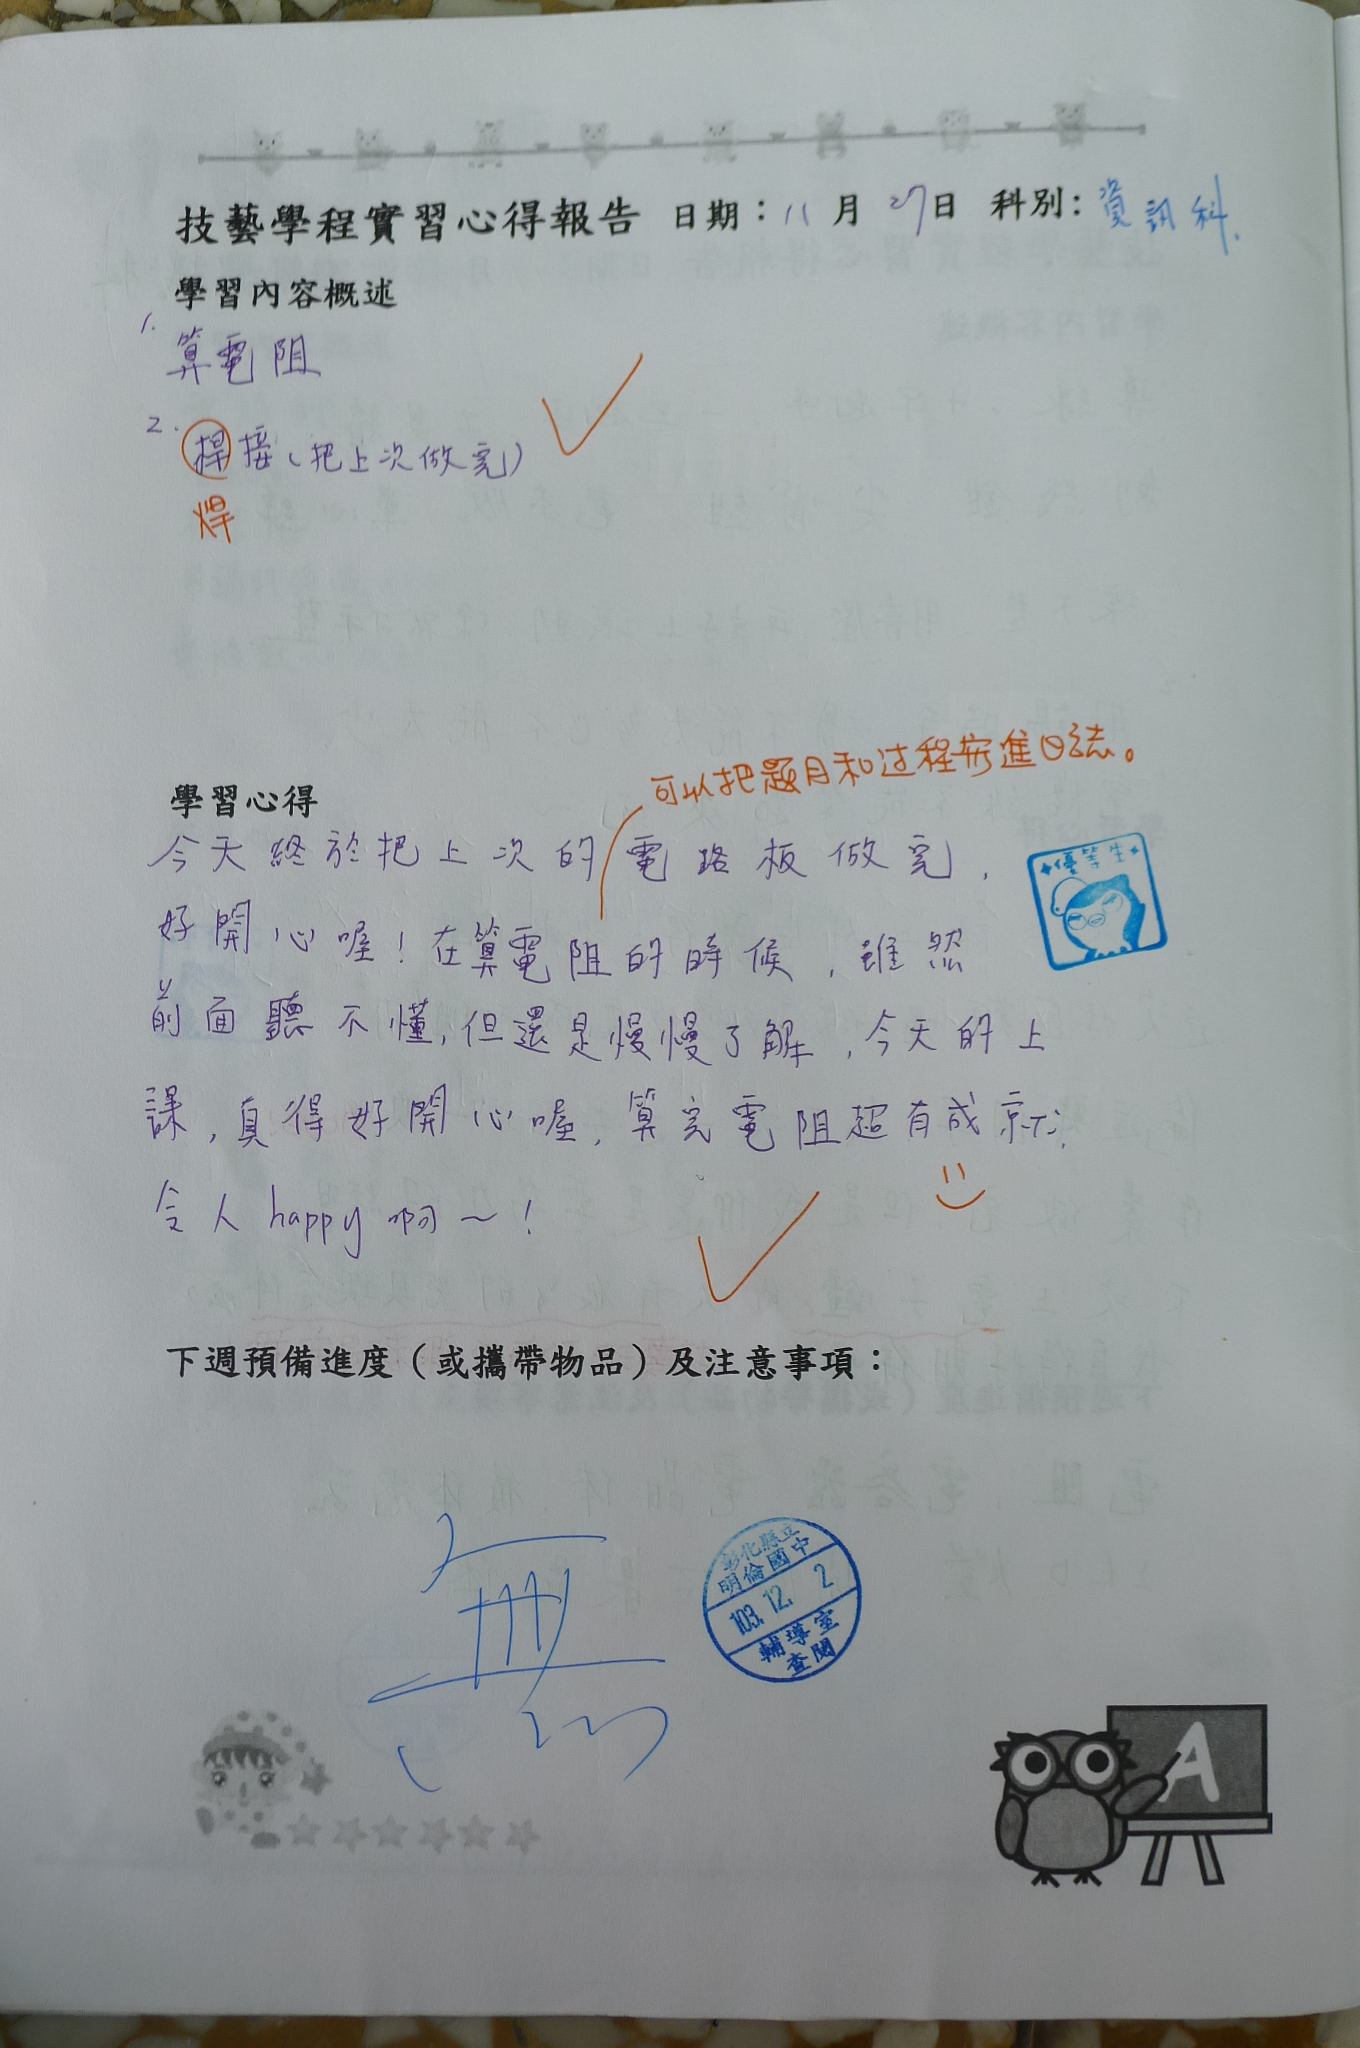 技藝學程實習心得報告 日期：11月27日 科別：資訊科.
學習內容概述
1. 算電阻
2. 捍接(把上次做完)
焊
可以把題目和过程寫進日誌。
學習心得
今天終於把上次的電路板做完,
優等生
好開心喔!在算電阻的時候,雖然
前面聽不懂,但還是慢慢了解,今天的上
課,真得好開心喔,算完電阻超有成就,
令人happy啊~!
下週預備進度（或攜帶物品）及注意事項：
無
彰化縣立
明倫國中
103.12.2
輔導室
查閱
A